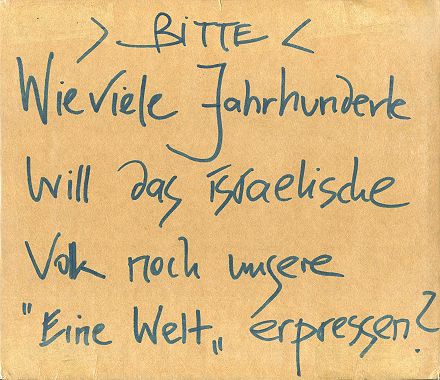 > BITTE <
Wieviele Jahrhunderte
will das israelische
Volk noch unsere
"Eine Welt„ erpressen?